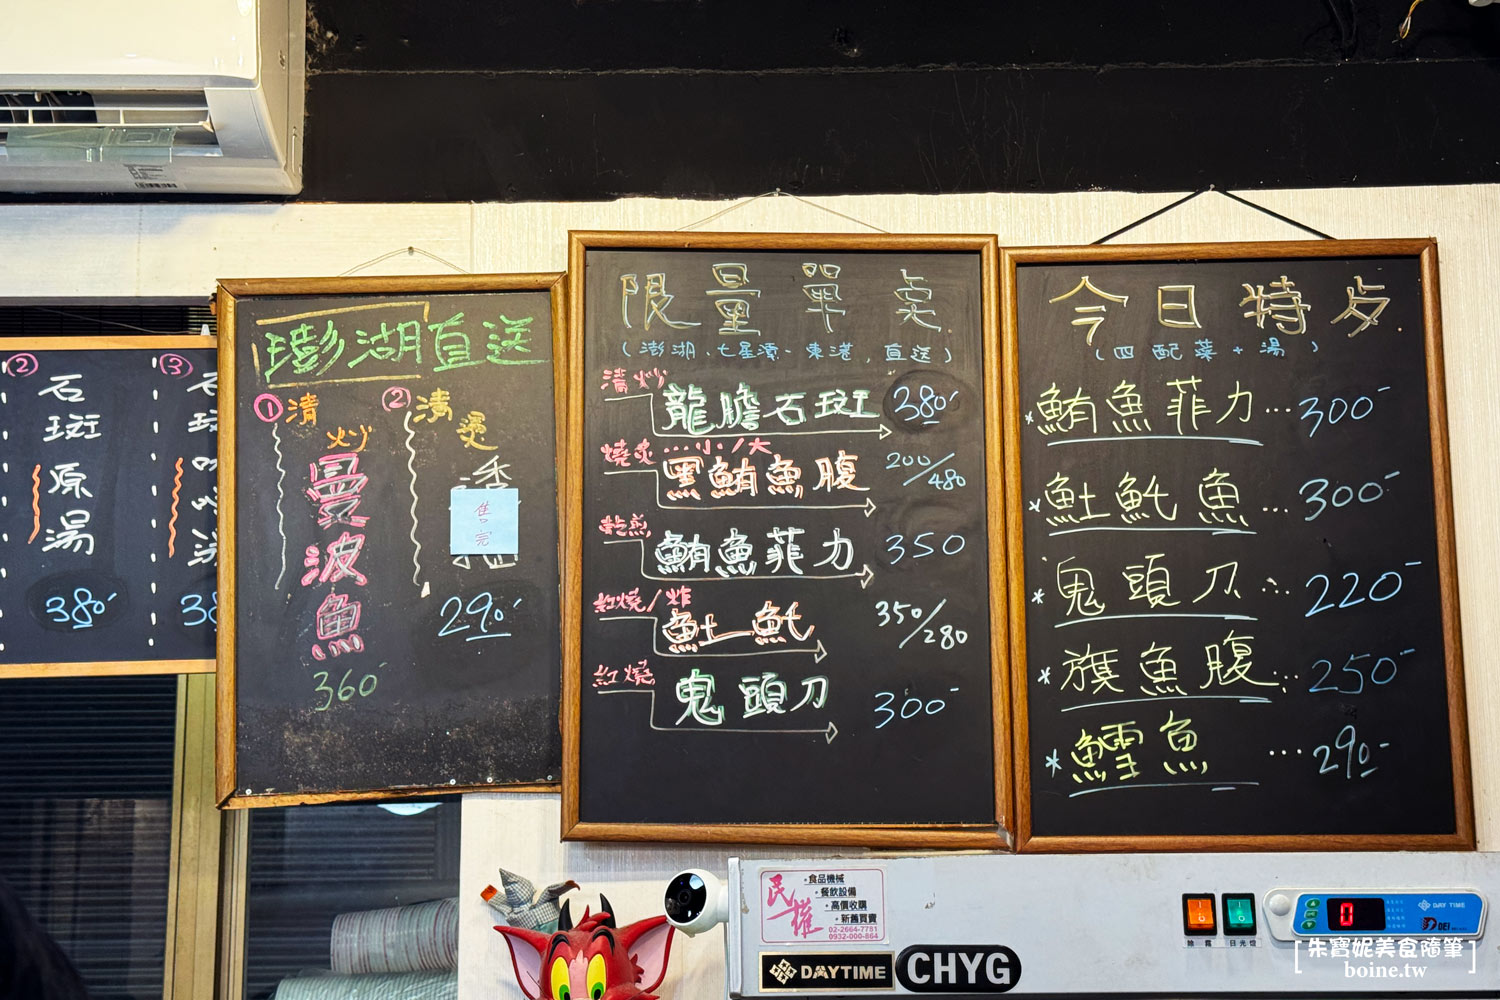 ②
石斑原湯
380
③
澎湖直送
①清炒
曼波魚
360
②清燙
售完
290
限量單点
(澎湖、七星潭、東港,直送)
清炒
龍膽石斑 380
燒炙...小/大
黑鮪魚腹 200/480
乾煎
鮪魚菲力 350
紅燒/炸
魚土魠 350/280
紅燒
鬼頭刀 300
今日特点
(四配菜+湯)
*鮪魚菲力...300
*魚土魠魚...300
*鬼頭刀...220
*旗魚腹...250
*鱈魚...290
民權
•食品機械
•餐飲設備
•高價收購
•新舊買賣
02-2664-7781
0932-000-864
DAYTIME
CHYG
除霧
日光燈
0
DAY TIME
DEI
[朱寶妮美食隨筆]
boine.tw